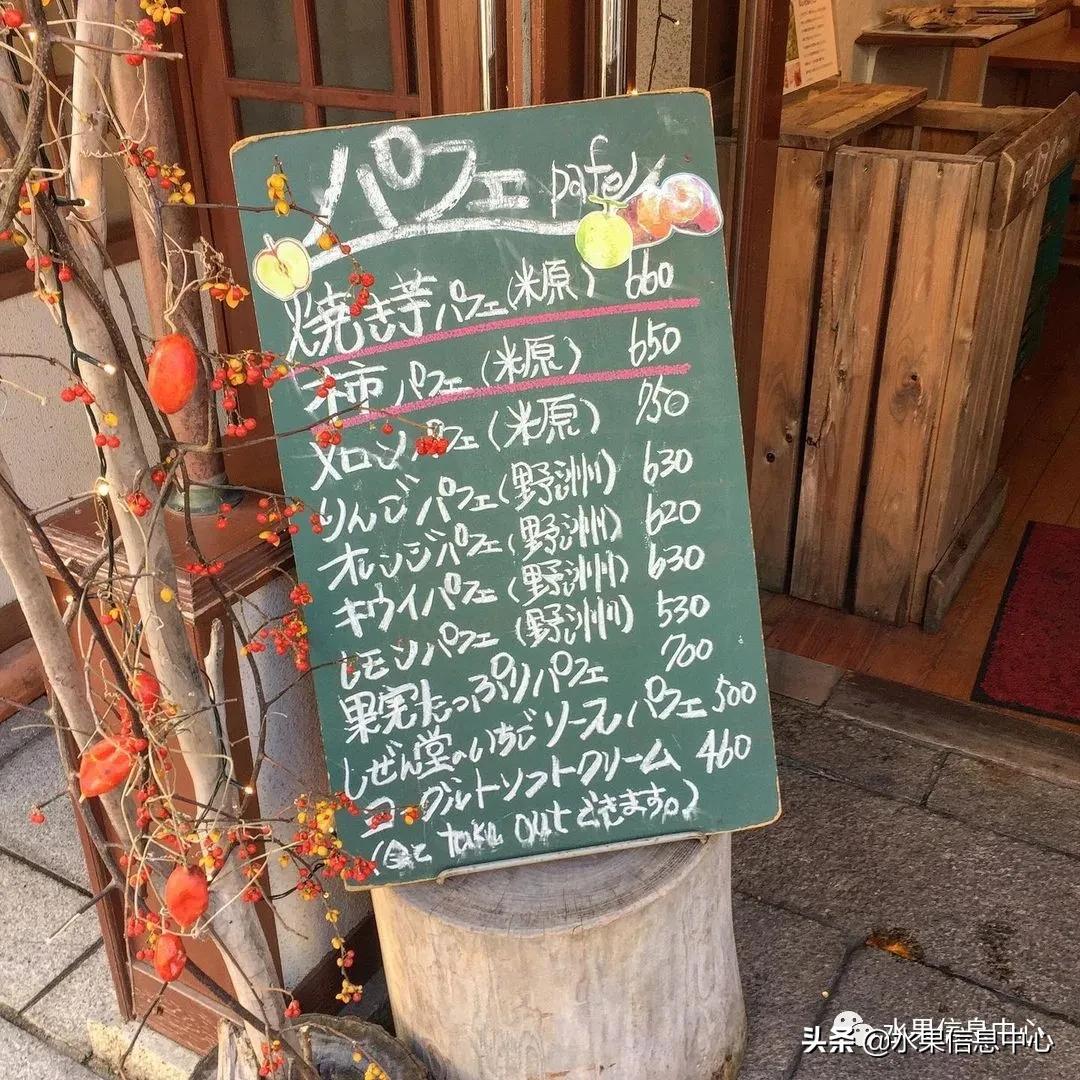 パフェ pafe
焼き芋パフェ(米原) 660
柿パフェ(米原) 650
メロンパフェ(米原) 750
りんごパフェ(野洲) 630
オレンジパフェ(野洲) 620
キウイパフェ(野洲) 630
レモンパフェ(野洲) 530
果実たっぷりパフェ 700
しぜん堂のいちごソースパフェ 500
ヨーグルトソフトクリーム 460
take outできます。)
水果信息中心
头条@水果信息中心